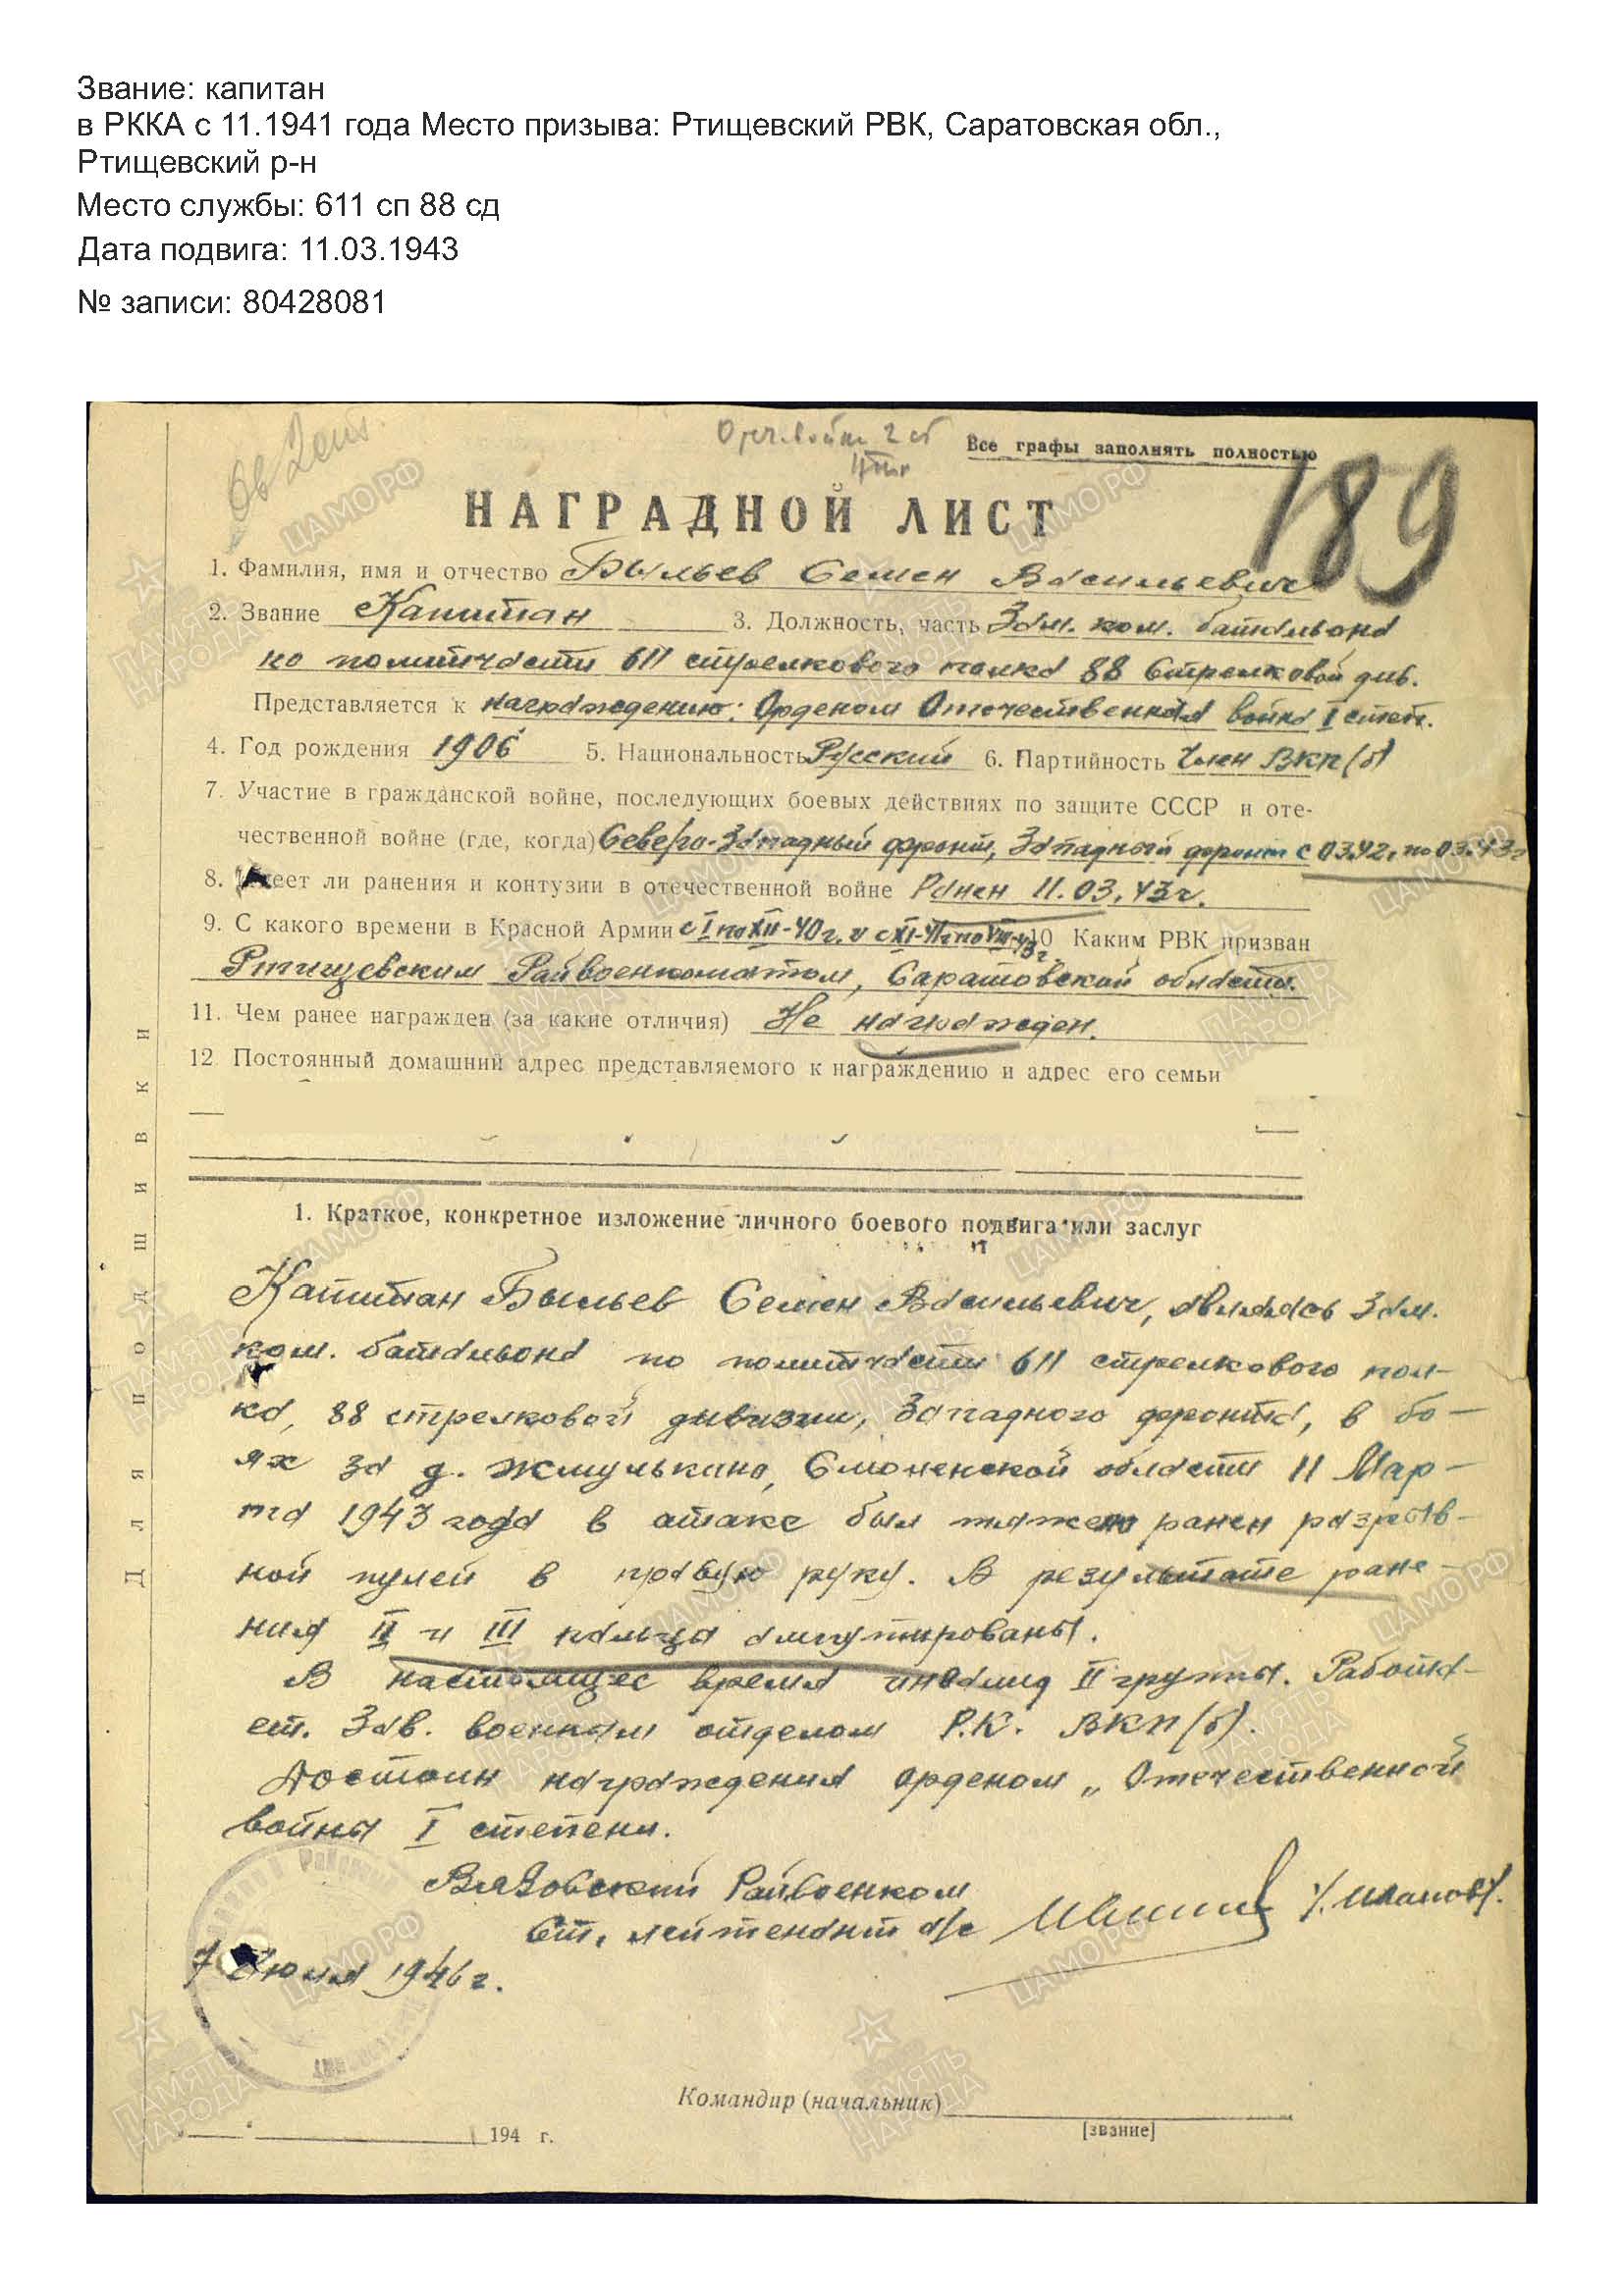 Звание: капитан
в РККА с 11.1941 года Место призыва: Ртищевский РВК, Саратовская обл.,
Ртищевский р-н
Место службы: 611 сп 88 сд
Дата подвига: 11.03.1943
№ записи: 80428081
Отеч. войны 2 ст
Все графы заполнять полностью
189
НАГРАДНОЙ ЛИСТ
1. Фамилия, имя и отчество Быльев Семен Васильевич
2. Звание Капитан 3. Должность, часть Зам. ком. батальона
по политчасти 611 стрелкового полка 88 Стрелковой див.
Представляется к награждению: Орденом Отечественная война I степ.
4. Год рождения 1906 5. Национальность Русский 6. Партийность Член ВКП(б)
7. Участие в гражданской войне, последующих боевых действиях по защите СССР и оте-
чественной войне (где, когда) Северо-Западный фронт, Западный фронт с 03.42г. по 03.43г
8. Имеет ли ранения и контузии в отечественной войне Ранен 11.03.43г.
9. С какого времени в Красной Армии с I по XII-40г. и с XI-41г по VIII-43г. 10 Каким РВК призван
Ртищевским Райвоенкоматом, Саратовской области.
11. Чем ранее награжден (за какие отличия) Не награжден.
12 Постоянный домашний адрес представляемого к награждению и адрес его семьи
Для подшивки
1. Краткое, конкретное изложение личного боевого подвига или заслуг
Капитан Быльев Семен Васильевич, являясь Зам.
ком. батальона по политчасти 611 стрелкового пол-
ка, 88 стрелковой дивизии, Западного фронта, в бо-
ях за д. Жмулькино, Смоленской области 11 Мар-
та 1943 года в атаке был тяжело ранен разрыв-
ной пулей в правую руку. В результате ране-
ния II и III пальцы ампутированы.
В настоящее время инвалид II группы. Работа-
ет. Зав. военным отделом Р.К. ВКП(б).
Достоин награждения орденом „Отечественной
войны I степени.
Вязовский Райвоенком
Ст. лейтенант а/с
7 Июля 1946 г.
Командир (начальник)
[звание]
194 г.
ПАМЯТЬ НАРОДА
ЦАМО РФ